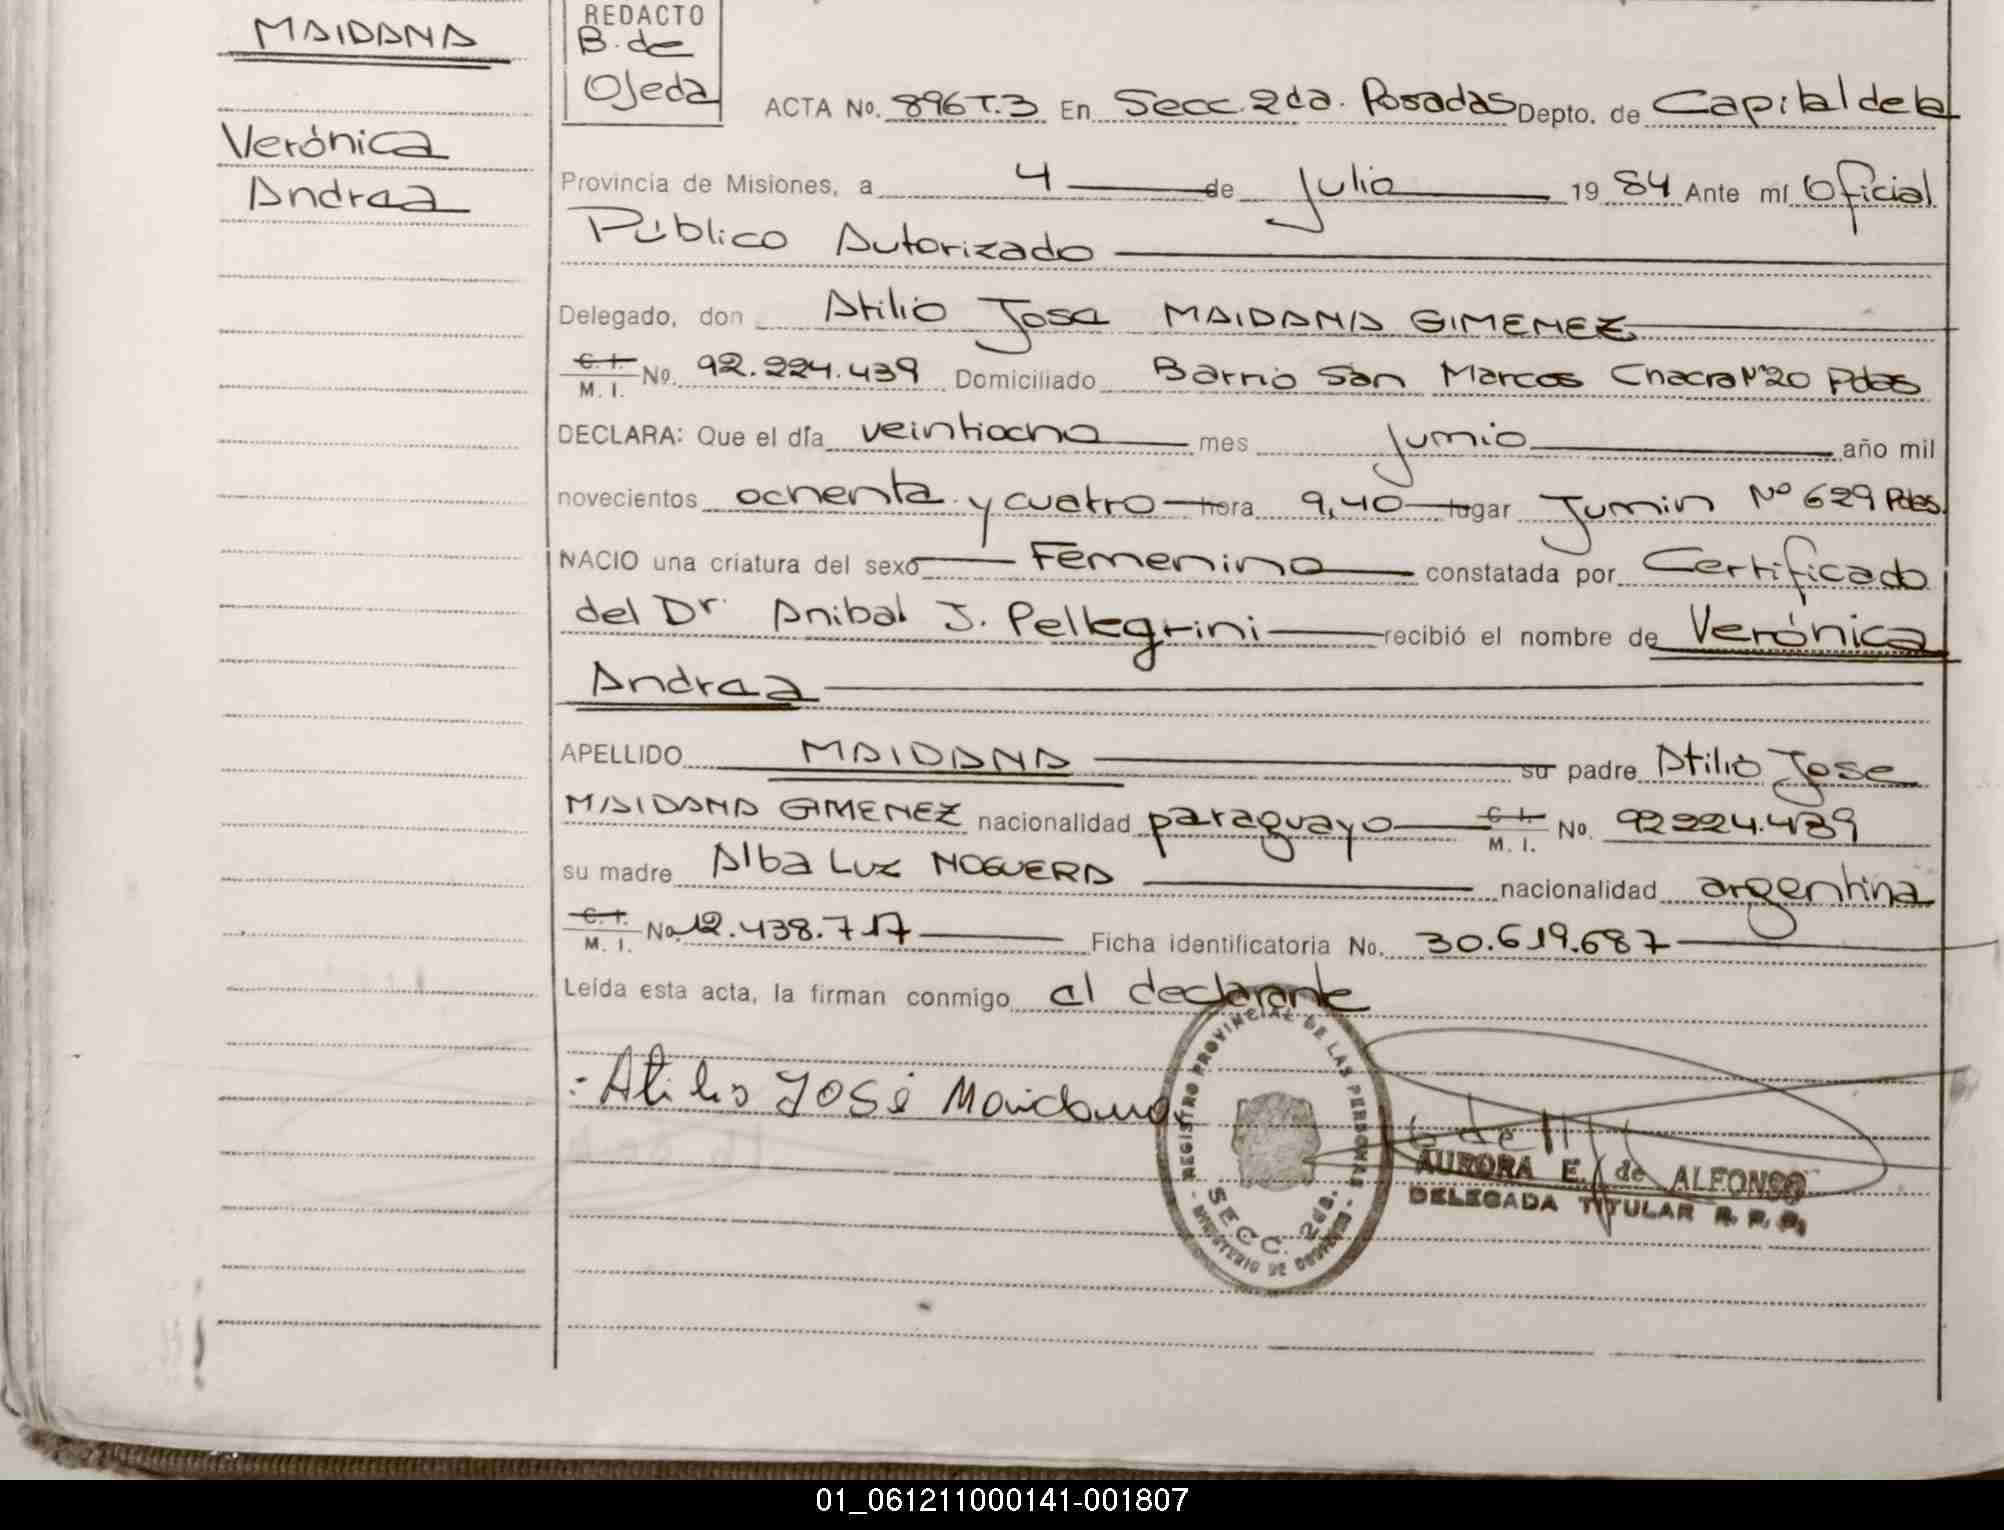 MAIDANA
Verónica
Andrea
REDACTO
B. de
Ojeda
ACTA No. 896T.3 En Secc. 2da. Posadas Depto. de Capital de la
Provincia de Misiones, a 4 de Julio 1984 Ante mí Oficial
Público Autorizado
Delegado, don Atilio José MAIDANA GIMENEZ
C. I. M. I. No. 92.224.439 Domiciliado Barrio San Marcos Chacra Nº20 Pdas
DECLARA: Que el día veintiocho mes junio año mil
novecientos ochenta y cuatro hora 9,40 lugar Junin Nº 629 Pdas.
NACIO una criatura del sexo Femenino constatada por Certificado
del Dr. Anibal J. Pellegrini recibió el nombre de Verónica
Andrea
APELLIDO MAIDANA su padre Atilio José
MAIDANA GIMENEZ nacionalidad paraguayo C. I. M. I. No. 92224.439
su madre Alba Luz NOGUERA nacionalidad argentina
C. I. M. I. No. 12.438.717 Ficha identificatoria No. 30.619.687
Leída esta acta, la firman conmigo el declarante
Atilio José Maidana
REGISTRO PROVINCIAL DE LAS PERSONAS
SECC. 2da.
MINISTERIO DE GOBIERNO
AURORA E. de ALFONSO
DELEGADA TITULAR R. P. P.
01_061211000141-001807